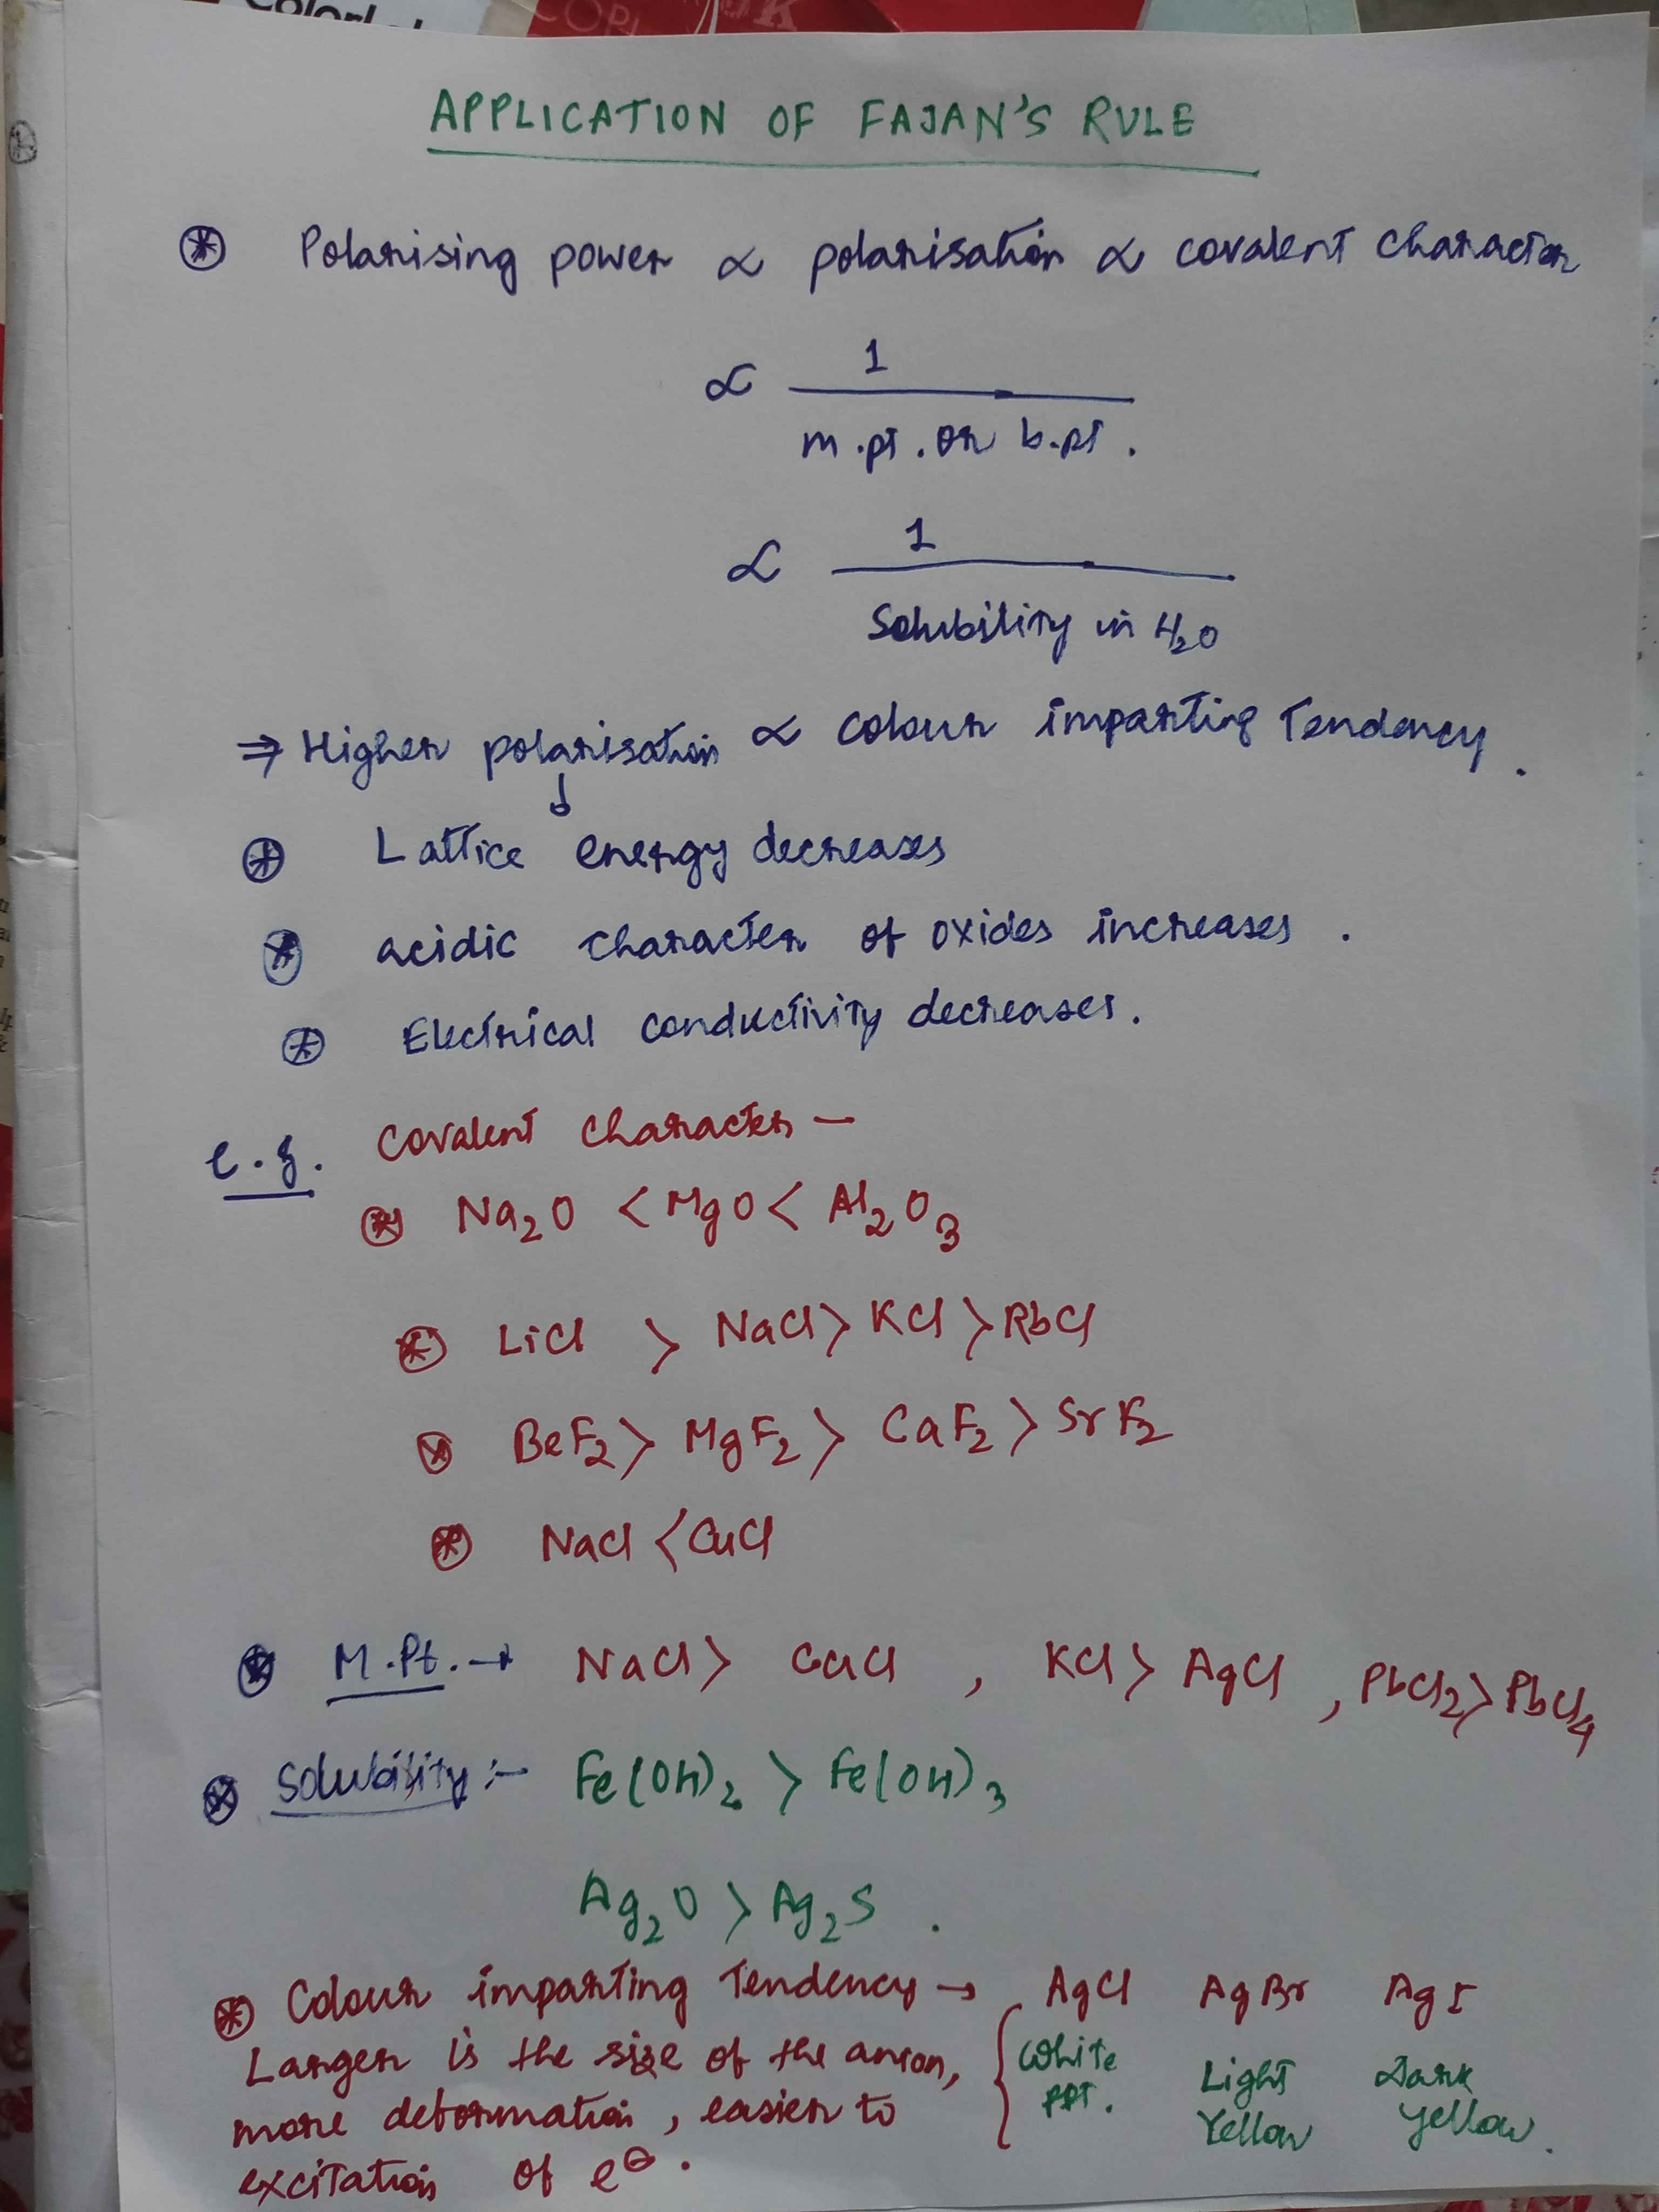 Colorl
COPI
APPLICATION OF FAJAN'S RULE
Polarising power ∝ polarisation ∝ covalent character
∝ 1
m.pt. or b.pt.
∝ 1
Solubility in H₂O
⇒ Higher polarisation ∝ colour imparting Tendency.
↓
Lattice energy decreases
acidic character of oxides increases.
Electrical conductivity decreases.
e.g. Covalent character —
Na₂O < MgO < Al₂O₃
LiCl > NaCl > KCl > RbCl
BeF₂ > MgF₂ > CaF₂ > SrF₂
NaCl < CuCl
M.Pt. → NaCl > CuCl , KCl > AgCl , PbCl₂ > PbCl₄
Solubility :- Fe(OH)₂ > Fe(OH)₃
Ag₂O > Ag₂S .
Colour imparting Tendency → AgCl AgBr AgI
Larger is the size of the anion, White Light Dark
more deformation, easier to PPT. Yellow Yellow.
excitation of e⊖.